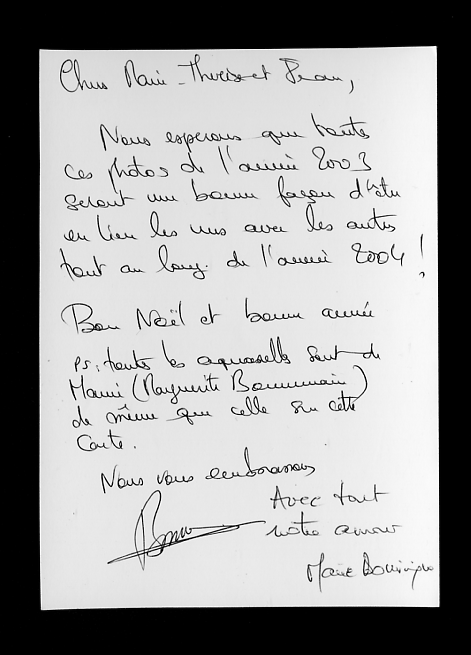 Chers Marie-Thérèse et Jean,
Nous espérons que toutes
ces photos de l'année 2003
seront une bonne façon d'être
en lien les uns avec les autres
tout au long de l'année 2004 !
Bon Noël et bonne année
ps: toutes les aquarelles sont de
Mamie (Marguerite
de même que celle sur cette
Carte.
Nous vous embrassons
Avec tout
notre amour
Marie Dominique